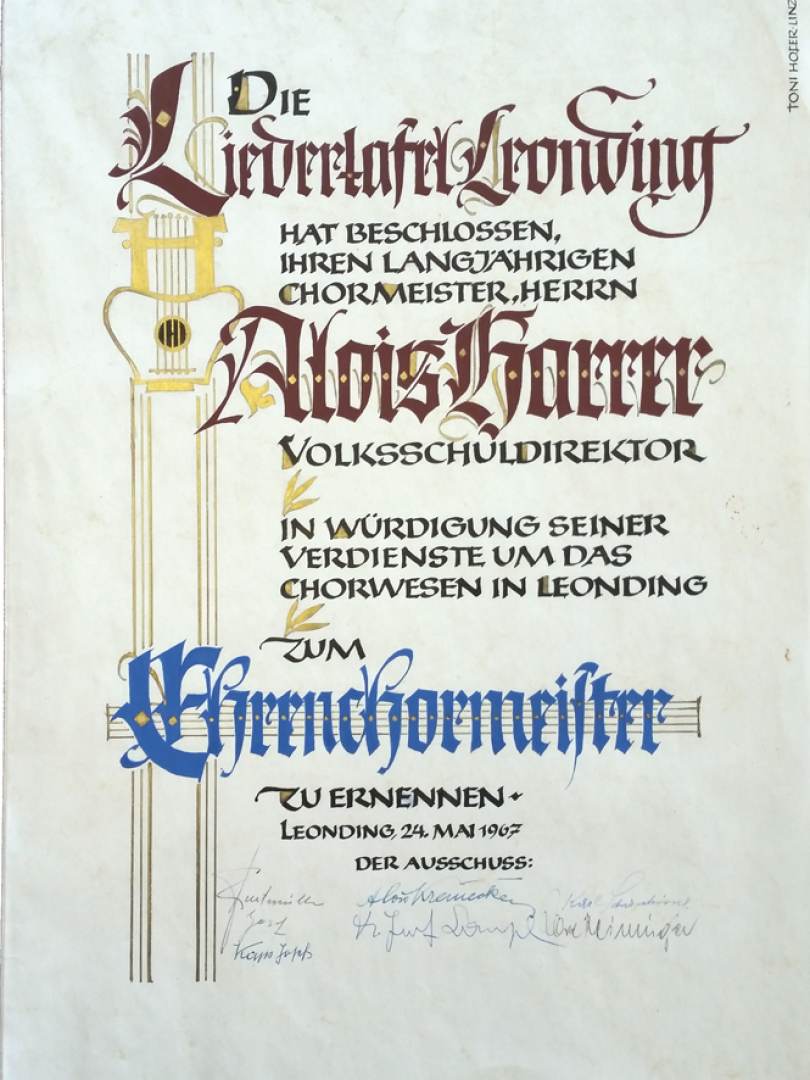 TONI HOFER-LINZ
DIE
Liedertafel Leonding
HAT BESCHLOSSEN,
IHREN LANGJÄHRIGEN
CHORMEISTER, HERRN
Alois Harrer
VOLKSSCHULDIREKTOR
IN WÜRDIGUNG SEINER
VERDIENSTE UM DAS
CHORWESEN IN LEONDING
ZUM
Ehrenchormeister
ZU ERNENNEN
LEONDING, 24. MAI 1967
DER AUSSCHUSS:
Alois
Josef